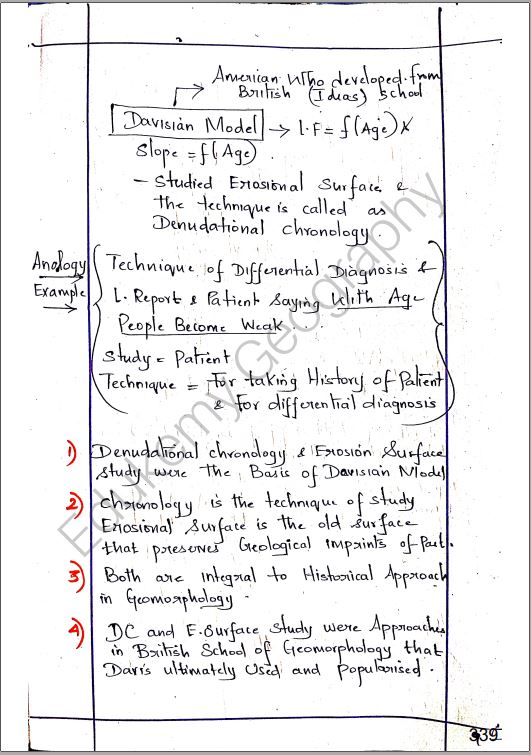 American Who developed from
British (Ideas) School
Davisian Model → L.F = f(Age) X
Slope = f(Age)
- Studied Erosional Surface &
the technique is called as
Denudational chronology.
Analogy
Example
Technique of Differential Diagnosis &
L. Report & Patient Saying With Age
People Become Weak . . .
Study = Patient
Technique = For taking History of Patient
& For differential diagnosis
1) Denudational chronology & Erosion Surface
study were the Basis of Davisian Model
2) Chronology is the technique of study
Erosional Surface is the old surface
that preserves Geological imprints of Past.
3) Both are integral to Historical Approach
in Geomorphology.
4) DC and E.Surface study were Approaches
in British School of Geomorphology that
Davis ultimately Used and popularised.
Edukemy Geography
339